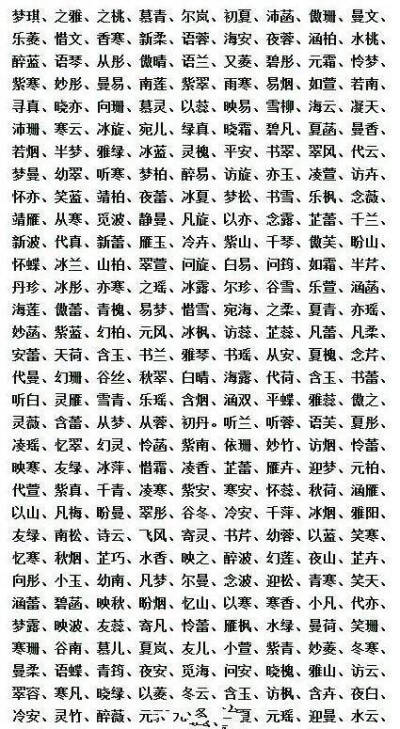 梦琪、之雅、之桃、慕青、尔岚、初夏、沛菡、傲珊、曼文、
乐菱、惜文、香寒、新柔、语蓉、海安、夜蓉、涵柏、水桃、
醉蓝、语琴、从彤、傲晴、语兰、又菱、碧彤、元霜、怜梦、
紫寒、妙彤、曼易、南莲、紫翠、雨寒、易烟、如萱、若南、
寻真、晓亦、向珊、慕灵、以蕊、映易、雪柳、海云、凝天、
沛珊、寒云、冰旋、宛儿、绿真、晓霜、碧凡、夏菡、曼香、
若烟、半梦、雅绿、冰蓝、灵槐、平安、书翠、翠风、代云、
梦曼、幼翠、听寒、梦柏、醉易、访旋、亦玉、凌萱、访卉、
怀亦、笑蓝、靖柏、夜蕾、冰夏、梦松、书雪、乐枫、念薇、
靖雁、从寒、觅波、静曼、凡旋、以亦、念露、芷蕾、千兰、
新波、代真、新蕾、雁玉、冷卉、紫山、千琴、傲芙、盼山、
怀蝶、冰兰、山柏、翠萱、问旋、白易、问筠、如霜、半芹、
丹珍、冰彤、亦寒、之瑶、冰露、尔珍、谷雪、乐萱、涵菡、
海莲、傲蕾、青槐、易梦、惜雪、宛海、之柔、夏青、亦瑶、
妙菡、紫蓝、幻柏、元风、冰枫、访蕊、芷蕊、凡蕾、凡柔、
安蕾、天荷、含玉、书兰、雅琴、书瑶、从安、夏槐、念芹、
代曼、幻珊、谷丝、秋翠、白晴、海露、代荷、含玉、书蕾、
听白、灵雁、雪青、乐瑶、含烟、涵双、平蝶、雅蕊、傲之、
灵薇、含蕾、从梦、从蓉、初丹。听兰、听蓉、语芙、夏彤、
凌瑶、忆翠、幻灵、怜菡、紫南、依珊、妙竹、访烟、怜蕾、
映寒、友绿、冰萍、惜霜、凌香、芷蕾、雁卉、迎梦、元柏、
代萱、紫真、千青、凌寒、紫安、寒安、怀蕊、秋荷、涵雁、
以山、凡梅、盼曼、翠彤、谷冬、冷安、千萍、冰烟、雅阳、
友绿、南松、诗云、飞风、寄灵、书芹、幼蓉、以蓝、笑寒、
忆寒、秋烟、芷巧、水香、映之、醉波、幻莲、夜山、芷卉、
向彤、小玉、幼南、凡梦、尔曼、念波、迎松、青寒、笑天、
涵蕾、碧菡、映秋、盼烟、忆山、以寒、寒香、小凡、代亦、
梦露、映波、友蕊、寄凡、怜蕾、雁枫、水绿、曼荷、笑珊、
寒珊、谷南、慕儿、夏岚、友儿、小萱、紫青、妙菱、冬寒、
曼柔、语蝶、青筠、夜安、觅海、问安、晓槐、雅山、访云、
翠容、寒凡、晓绿、以菱、冬云、含玉、访枫、含卉、夜白、
冷安、灵竹、醉薇、元、夏、元瑶、迎曼、水云、